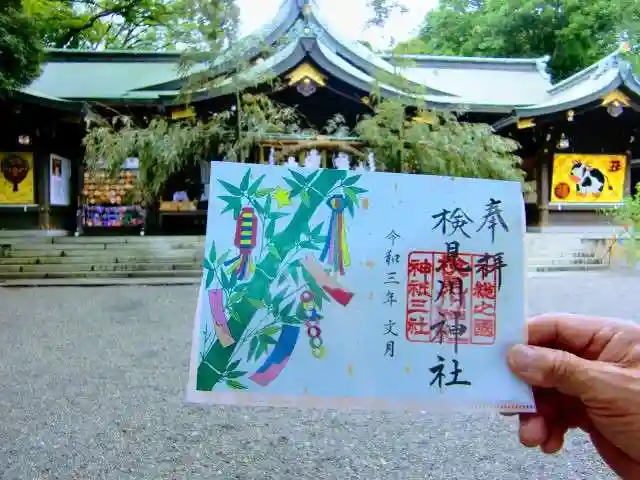 奉拝
検見川神社
下総之國
神社三社
令和三年 文月
丑